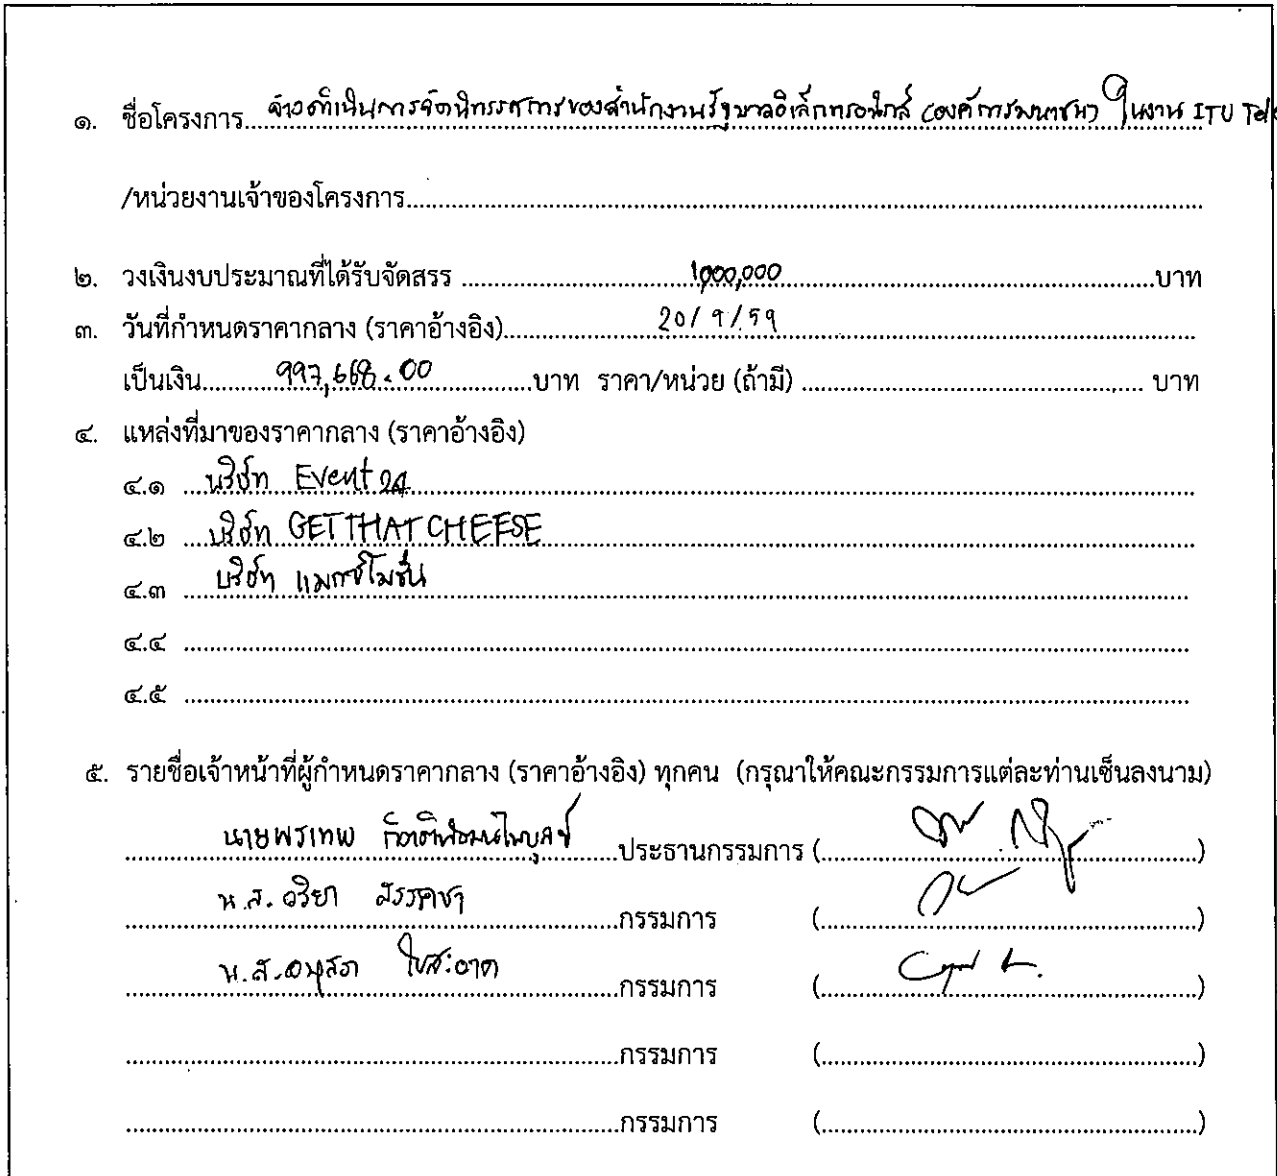 ๑. ชื่อโครงการ จ้างดำเนินการจัดนิทรรศการของสำนักงานรัฐบาลอิเล็กทรอนิกส์ (องค์การมหาชน) ในงาน ITU Tele
/หน่วยงานเจ้าของโครงการ
๒. วงเงินงบประมาณที่ได้รับจัดสรร 1,000,000 บาท
๓. วันที่กำหนดราคากลาง (ราคาอ้างอิง) 20/9/59
เป็นเงิน 997,668.00 บาท ราคา/หน่วย (ถ้ามี) บาท
๔. แหล่งที่มาของราคากลาง (ราคาอ้างอิง)
๔.๑ บริษัท Event 24
๔.๒ บริษัท GET THAT CHEESE
๔.๓ บริษัท แมกซ์โมชั่น
๔.๔
๔.๕
๕. รายชื่อเจ้าหน้าที่ผู้กำหนดราคากลาง (ราคาอ้างอิง) ทุกคน (กรุณาให้คณะกรรมการแต่ละท่านเซ็นลงนาม)
นายพรเทพ ประธานกรรมการ ( )
น.ส. อริยา กรรมการ ( )
น.ส. ใบสะอาด กรรมการ ( )
กรรมการ ( )
กรรมการ ( )